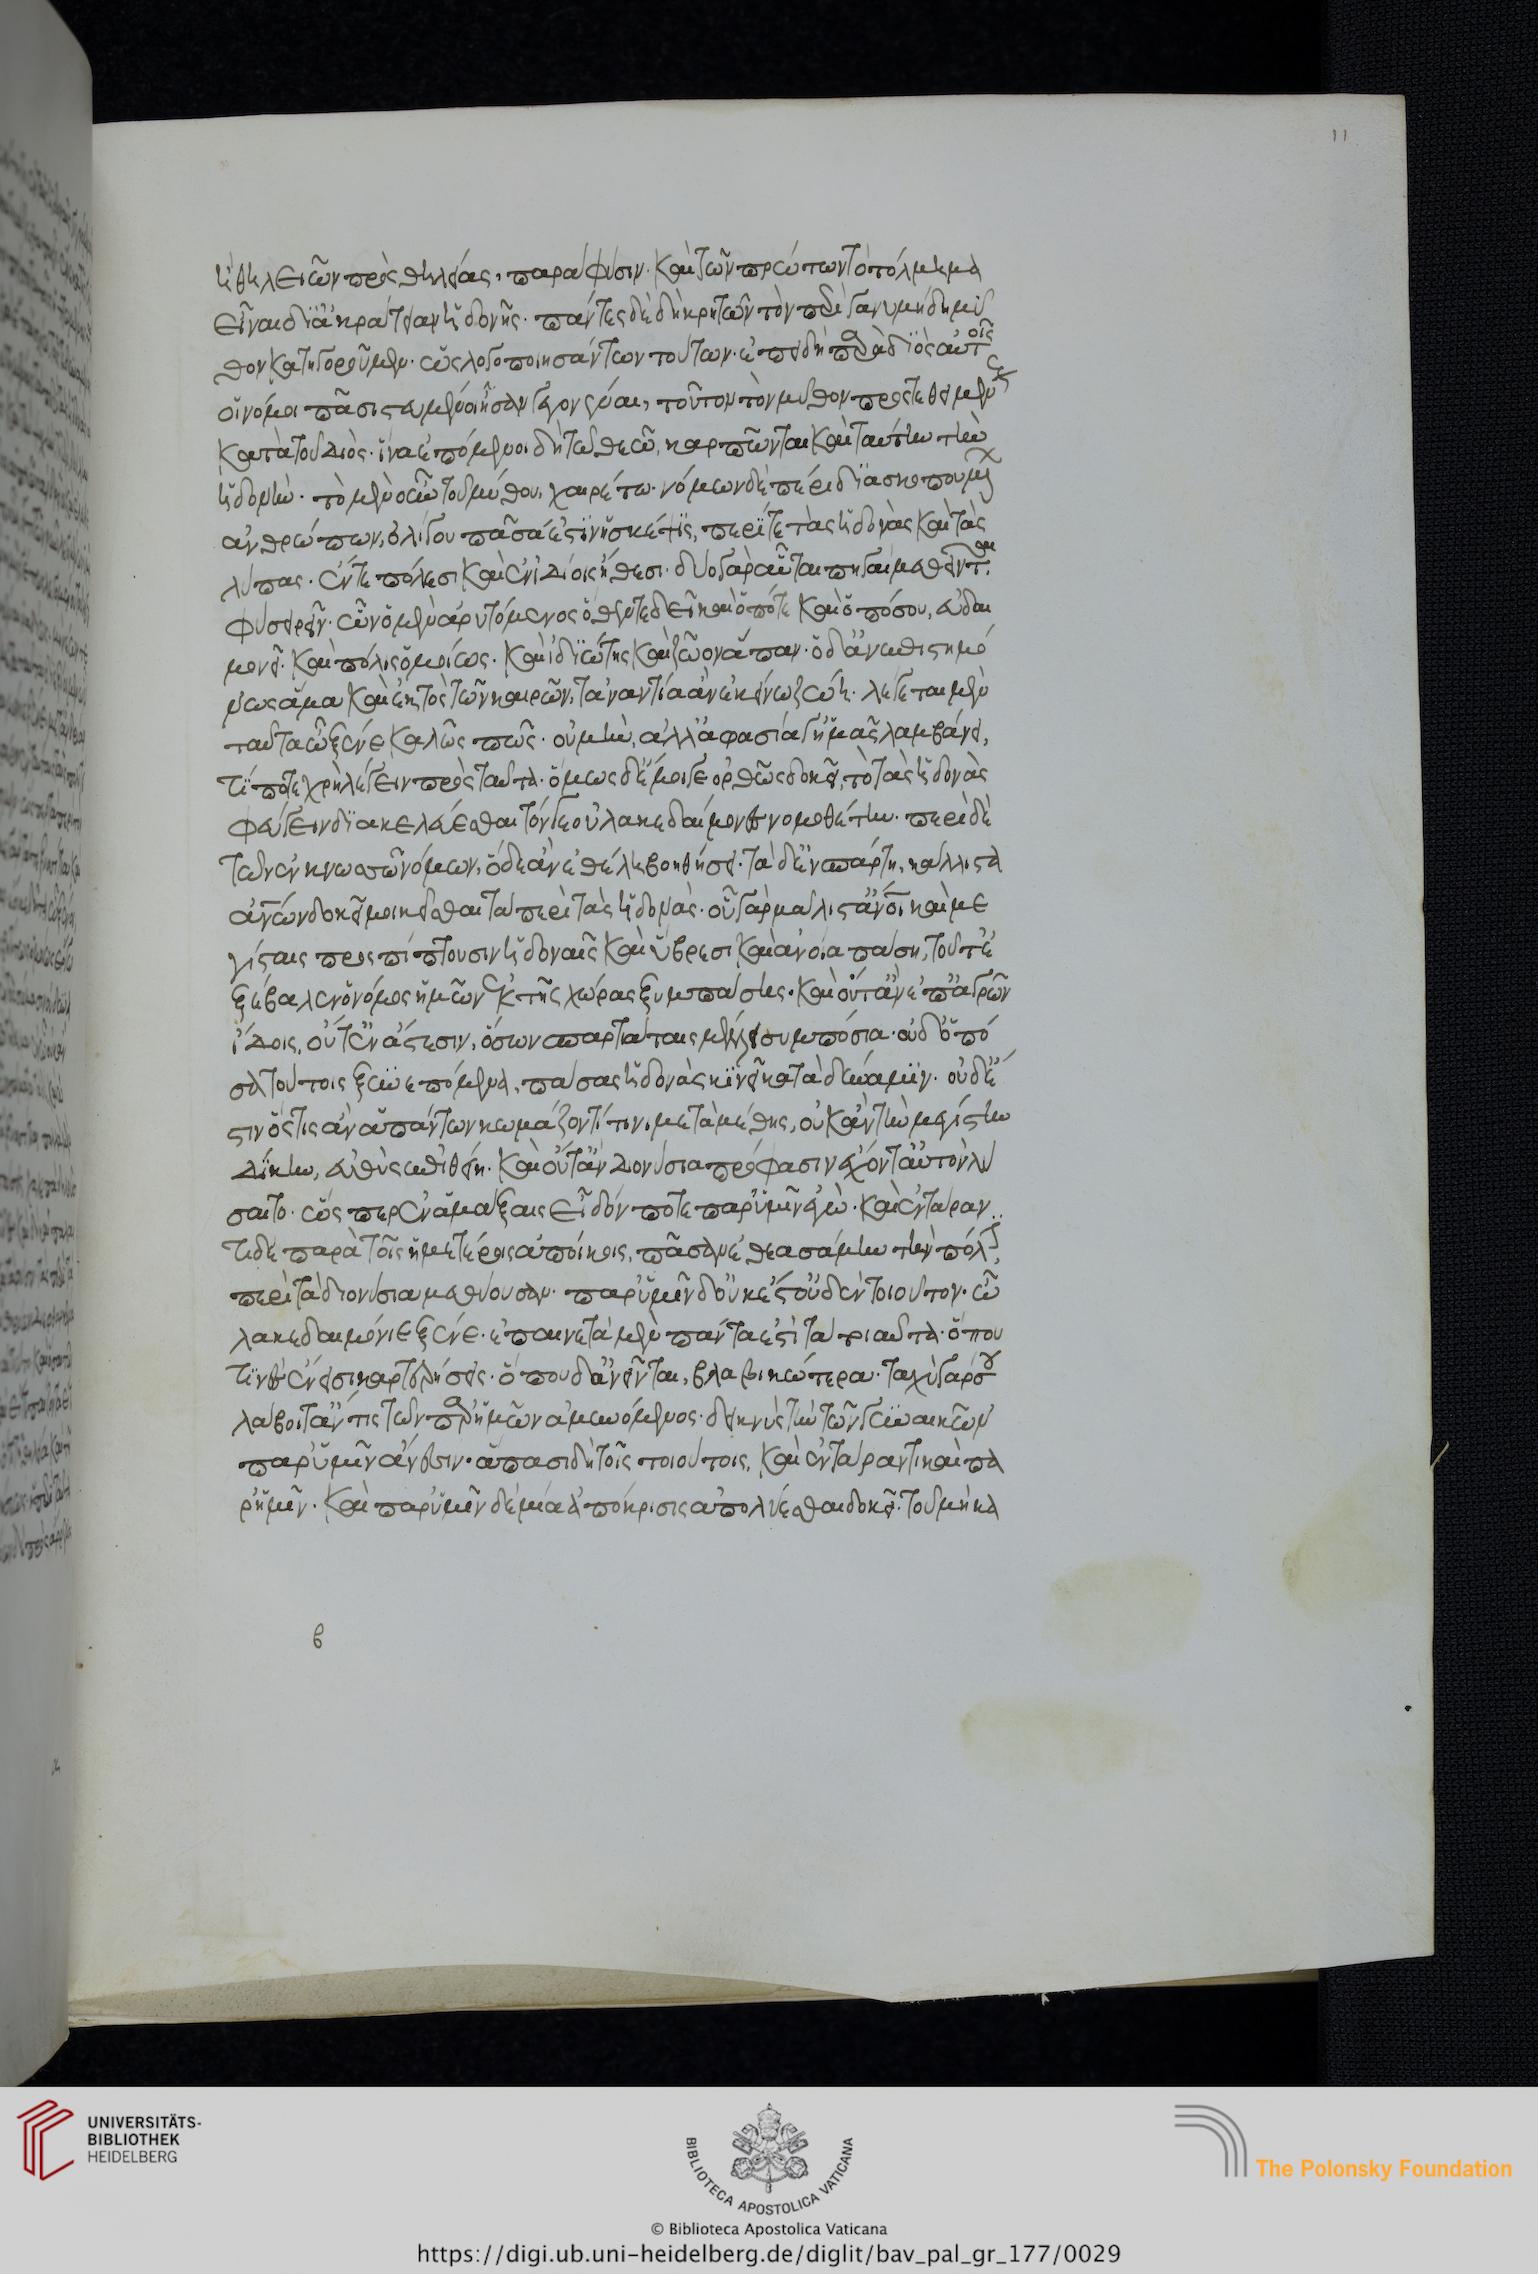 ἢ θηλειῶν πρὸς θηλείας, παρὰ φύσιν· καὶ τῶν πρώτων τὸ τόλμημα
εἶναι δι' ἀκράτειαν ἡδονῆς· πάντες δὲ δὴ κρητῶν τὸν περὶ γανυμήδη μῦ
θον κατηγοροῦμεν· ὡς λογοποιησάντων τούτων· ἐπειδὴ παρὰ διὸς αὐτοῖς
οἱ νόμοι πεπιστευμένοι ἦσαν γεγονέναι, τοῦτον τὸν μῦθον προστεθεικέναι
κατὰ τοῦ διός· ἵνα ἑπόμενοι δὴ τῷ θεῷ, καρπῶνται καὶ ταύτην τὴν
ἡδονήν· τὸ μὲν οὖν τοῦ μύθου, χαιρέτω· νόμων δὲ πέρι διασκοπουμένων
ἀνθρώπων, ὀλίγου πᾶσά ἐστιν ἡ σκέψις, περί τε τὰς ἡδονὰς καὶ τὰς
λύπας· ἔν τε πόλεσι καὶ ἐν ἰδίοις ἤθεσι· δύο γὰρ αὗται πηγαὶ μεθεῖνται
φύσει ῥεῖν· ὧν ὁ μὲν ἀρυτόμενος ὅθεν τε δεῖ καὶ ὁπότε καὶ ὁπόσον, εὐδαι
μονεῖ· καὶ πόλις ὁμοίως· καὶ ἰδιώτης καὶ ζῶον ἅπαν· ὁ δ' ἀνεπιστημό
νως ἅμα καὶ ἐκτὸς τῶν καιρῶν, τἀναντία ἂν ἐκείνω ζώη· λέγεται μὲν
ταῦτα ὦ ξένε καλῶς πως· οὐ μὴν, ἀλλ' ἀφασία γ' ἡμᾶς λαμβάνει,
τί ποτε χρὴ λέγειν πρὸς ταῦτα· ὅμως δ' ἔμοιγε ὀρθῶς δοκεῖ, τὸ τὰς ἡδονὰς
φεύγειν διακελεύεσθαι τόν γε οὐ λακεδαίμονι νομοθέτην· περὶ δὲ
τῶν ἐν κνωσῶ νόμων, ὅδε ἂν ἐθέλη βοηθήσει· τὰ δ' ἐν σπάρτη, κάλλιστα
ἀνων δοκεῖ μοι κεῖσθαι τὰ περὶ τὰς ἡδονάς· οὗ γὰρ μάλιστ' ἄνοι καὶ με
γίσταις προσπίπτουσιν ἡδοναῖς καὶ ὕβρεσι καὶ ἀνοία πάση, τοῦτ' ἐ
ξέβαλεν ὁ νόμος ἡμῶν ἐκ τῆς χώρας ξυμπάσης· καὶ οὔτ' ἂν ἐπ' ἀγρῶν
ἴδοις, οὔτ' ἐν ἄστεσιν, ὅσων σπαρτιάταις μέλει συμπόσια· οὐδ' ὁπό
σα τούτοις ξυνεπόμενα, πάσας ἡδονὰς κινεῖ κατὰ δύναμιν· οὐδ' ἔ
στιν ὅστις ἂν ἀπαντῶν κωμάζοντί τινι μετὰ μέθης, οὐκ ἂν τὴν μεγίστην
δίκην, εὐθὺς ἐπιθείη· καὶ οὔτ' ἂν διονύσια πρόφασιν ἔχοντ' αὐτὸν λύ
σαιτο· ὥσπερ ἐν ἁμάξαις εἶδόν ποτε παρ' ὑμῖν ἐγώ· καὶ ἐν τάραν
τι δὲ παρὰ τοῖς ἡμετέροις ἀποίκοις, πᾶσαν ἐθεασάμην τὴν πόλιν
περὶ τὰ διονύσια μεθύουσαν· παρ' ὑμῖν δ' οὐκ ἔστ' οὐδὲν τοιοῦτον· ὦ
λακεδαιμόνιε ξένε· ἐπαινετὰ μὲν πάντα ἐστὶ τὰ τοιαῦτα· ὅπου
τινὲς ἔνεισι καρτερήσεις· ὅπου δ' ἀνεῖνται, βλακικώτερα· ταχὺ γάρ σου
λάβοιτ' ἄν τις τῶν παρ' ἡμῶν ἀμυνόμενος· δεικνὺς τὴν τῶν γυναικῶν
παρ' ὑμῖν ἄνεσιν· ἅπασι δὴ τοῖς τοιούτοις, καὶ ἐν τάραντι καὶ πα
ρ' ἡμῖν· καὶ παρ' ὑμῖν δὲ μία ἀπόκρισις ἀπολύεσθαι δοκεῖ· τοῦ μὴ κα
β
11
UNIVERSITÄTS-
BIBLIOTHEK
HEIDELBERG
BIBLIOTECA APOSTOLICA VATICANA
The Polonsky Foundation
© Biblioteca Apostolica Vaticana
https://digi.ub.uni-heidelberg.de/diglit/bav_pal_gr_177/0029